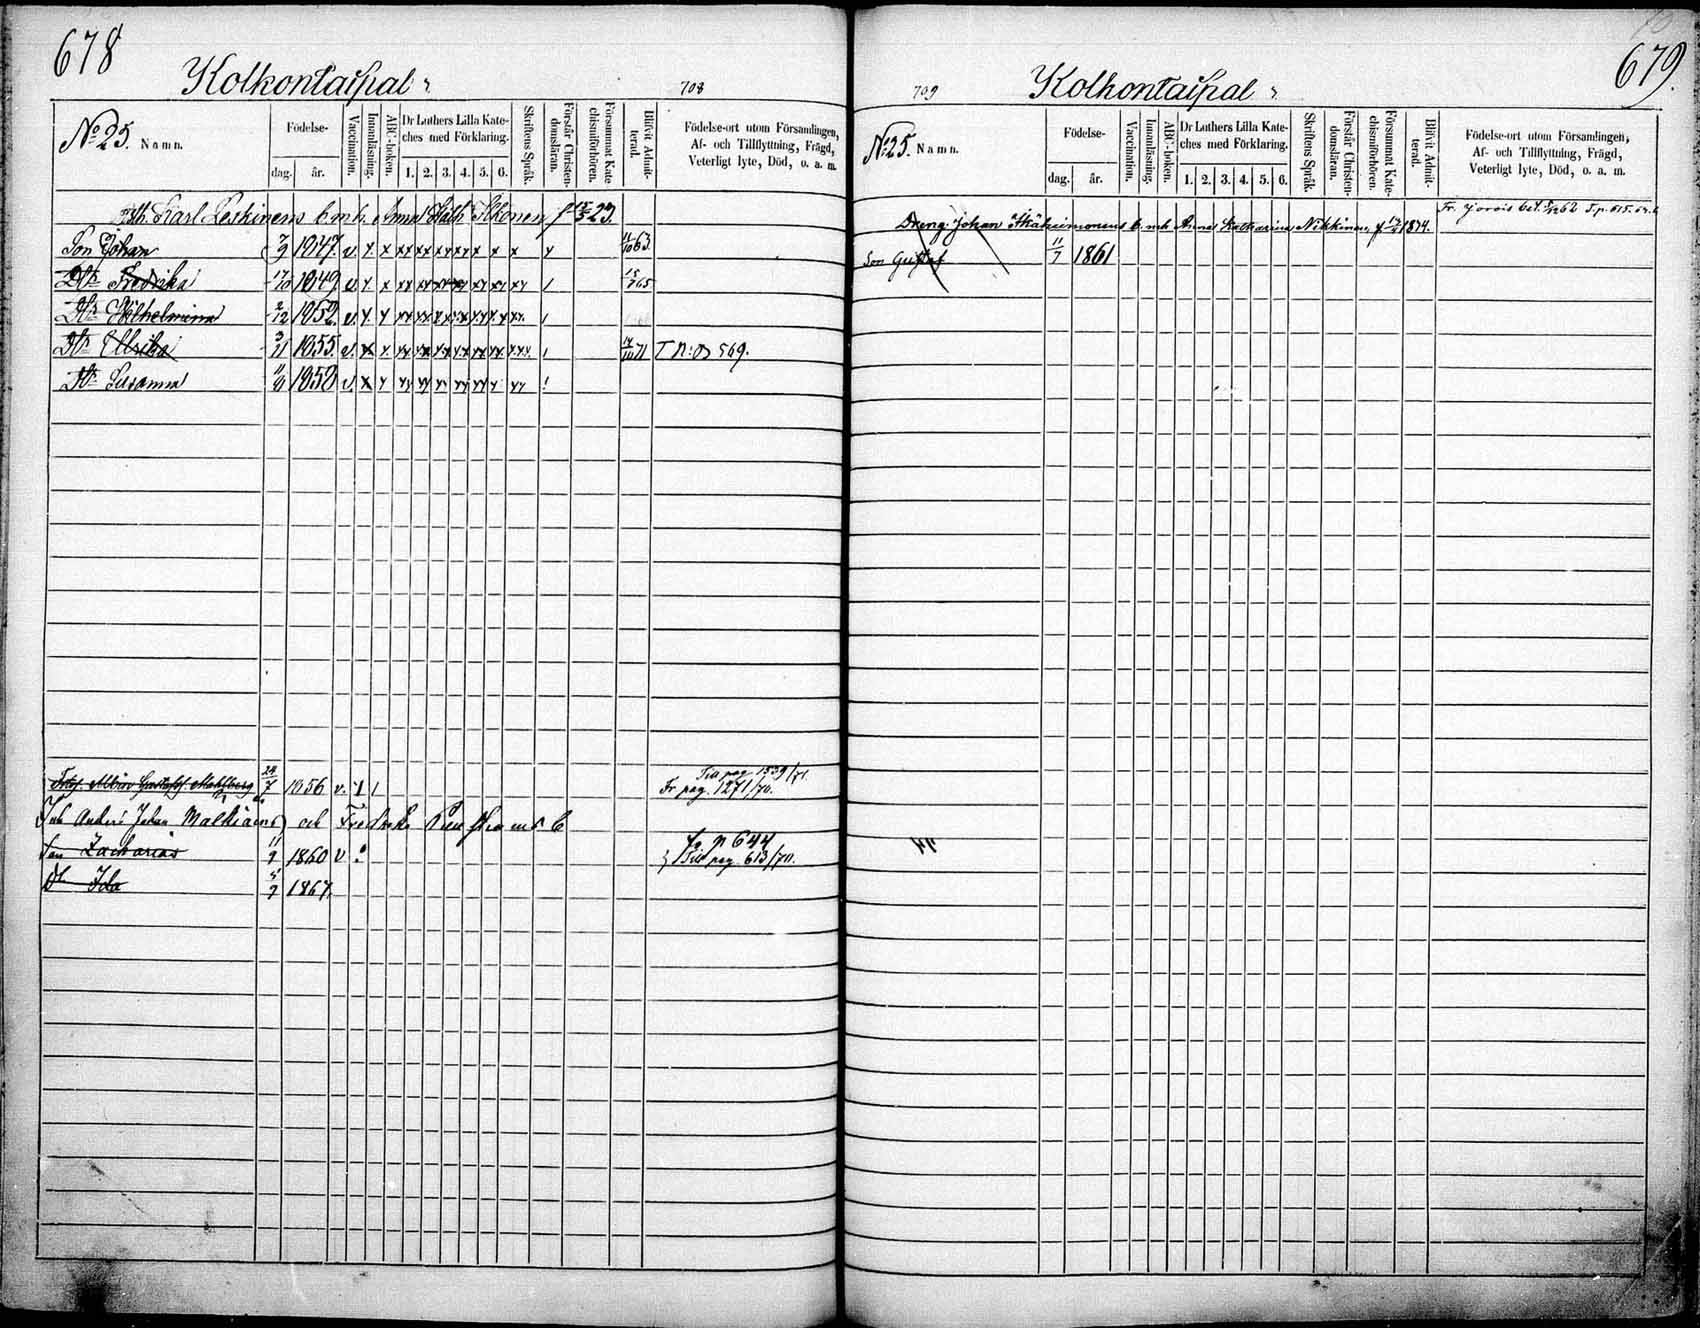 678
Kolkontaipal
708
No 25. Namn.
Födelse-
dag.
år.
Vaccination.
Innanläsning.
ABC-boken.
Dr Luthers Lilla Kate-
ches med Förklaring.
1. 2. 3. 4. 5. 6.
Skriftens Språk.
Förstår Christen-
domsläran.
Försummat Kate-
chismiförhören.
Blifvit Admit-
terad.
Födelse-ort utom Församlingen,
Af- och Tillflyttning, Frägd,
Veterligt lyte, Död, o. a. m.
Karl Leskinens b. m. h. Anna Kath. Ikonen f 23.
Son Johan 7/9 1847. v. x x xx xx xx xx x x x 11/10 63.
Dtr Fredrika 17/10 1849 v. x x xx xx xx xx xx xx xx / 15/7 65
Dtr Wilhelmina 2/12 1852. v. x x xx xx x xx xx xx xx. /
Dtr Ulrika 3/11 1855. v. x x xx xx xx xx xx xx xxx / 14/10 71 T n:o 569.
Dtr Susanna 11/9 1858 v. x x xx xx xx xx xx x xx /
Gustafsf. Mahlberg 24/7 1856 v. x / Till pag 1539/71
Fr pag. 1271/70.
Inh Anders Johan och Fredrika
Son Zacharias 11/9 1860 v fr p 644
Till pag. 613/70.
Dr Ida 5/9 1867.
679.
709
Kolkontaipal
No 25. Namn.
Födelse-
dag.
år.
Vaccination.
Innanläsning.
ABC-boken.
Dr Luthers Lilla Kate-
ches med Förklaring.
1. 2. 3. 4. 5. 6.
Skriftens Språk.
Förstår Christen-
domsläran.
Försummat Kate-
chismiförhören.
Blifvit Admit-
terad.
Födelse-ort utom Församlingen,
Af- och Tillflyttning, Frägd,
Veterligt lyte, Död, o. a. m.
Fr. Jorois bet. 62 T. p. 615.
Dreng Johan b. m. h. Anna Katharina Nikkinen, f 1834.
Son Gustaf 11/7 1861